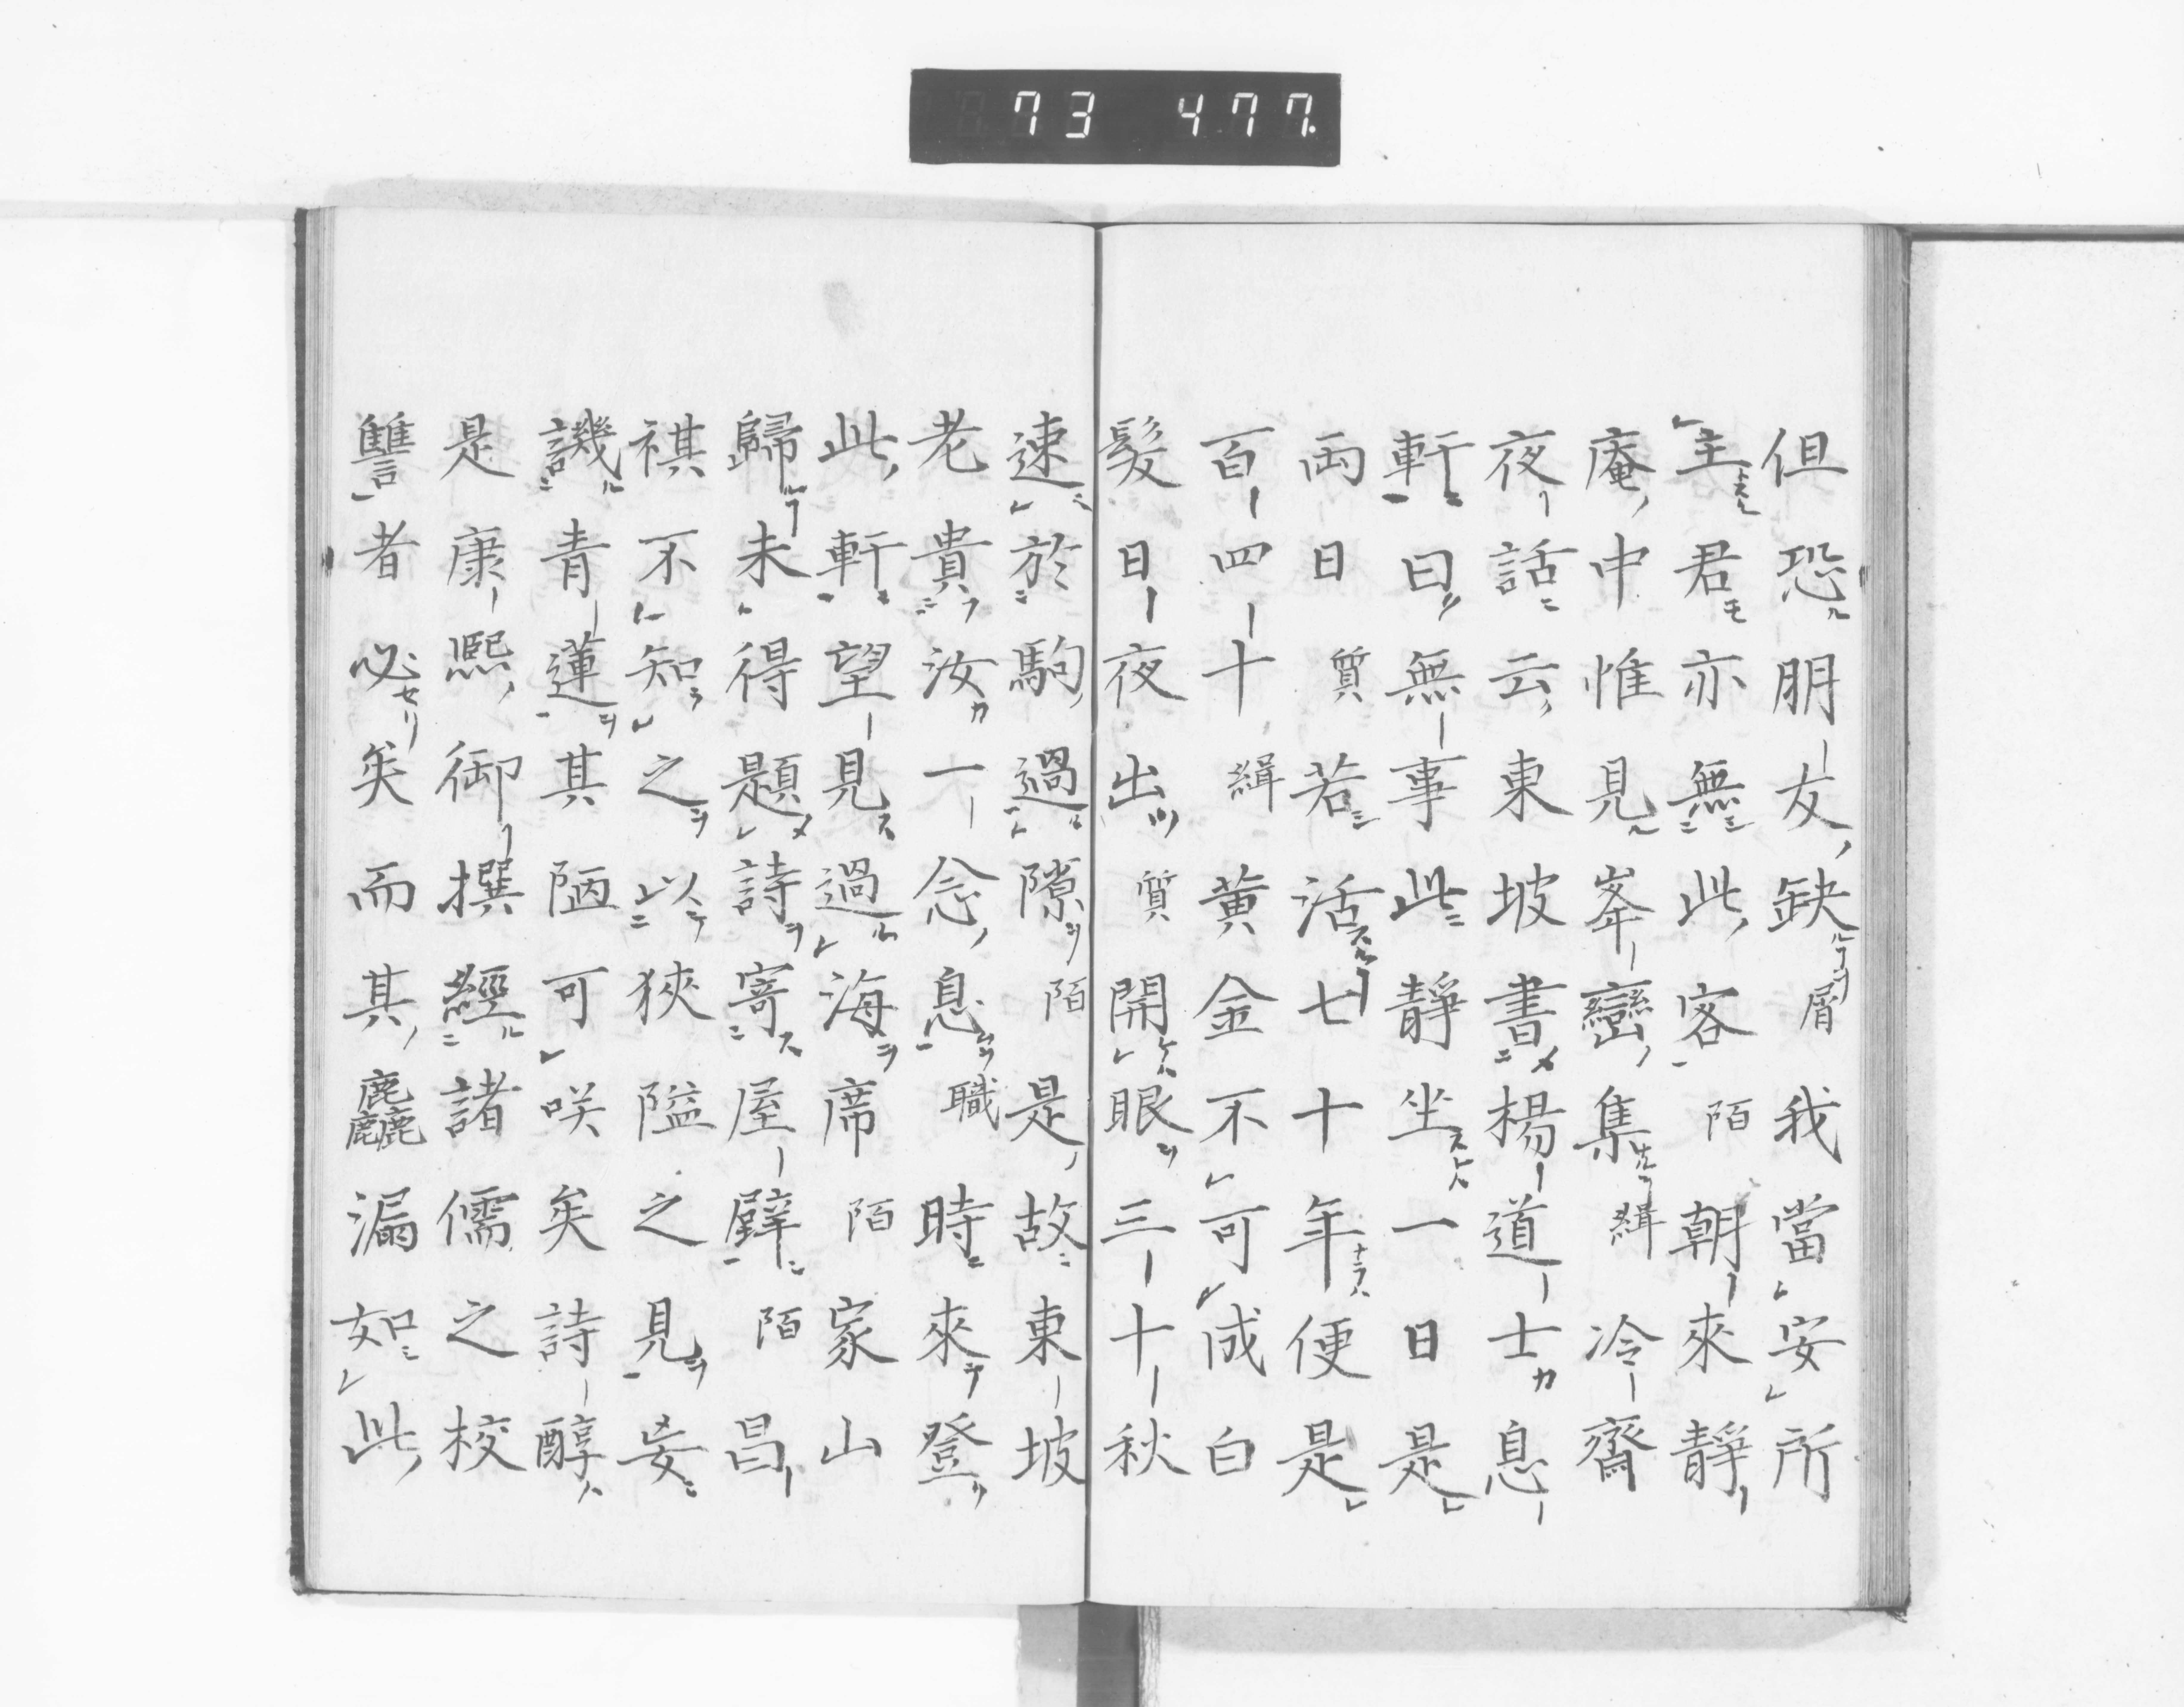 73 477.
但恐朋友缺屑我當安所
主君亦無此客陌朝來靜
庵中惟見峯巒集緝冷齋
夜話云東坡書楊道士息
軒曰無事此靜坐一日是
兩日質若活七十年便是
百四十緝黄金不可成白
髮日夜出質開眼三十秋
速於駒過隙陌是故東坡
老貴汝一念息職時來登
此軒望見過海席陌家山
歸未得題詩寄屋壁陌昌
祺不知之以狹隘之見妄
譏青蓮其陋可咲矣詩醇
是康熙御撰經諸儒之校
讐者必矣而其麤漏如此